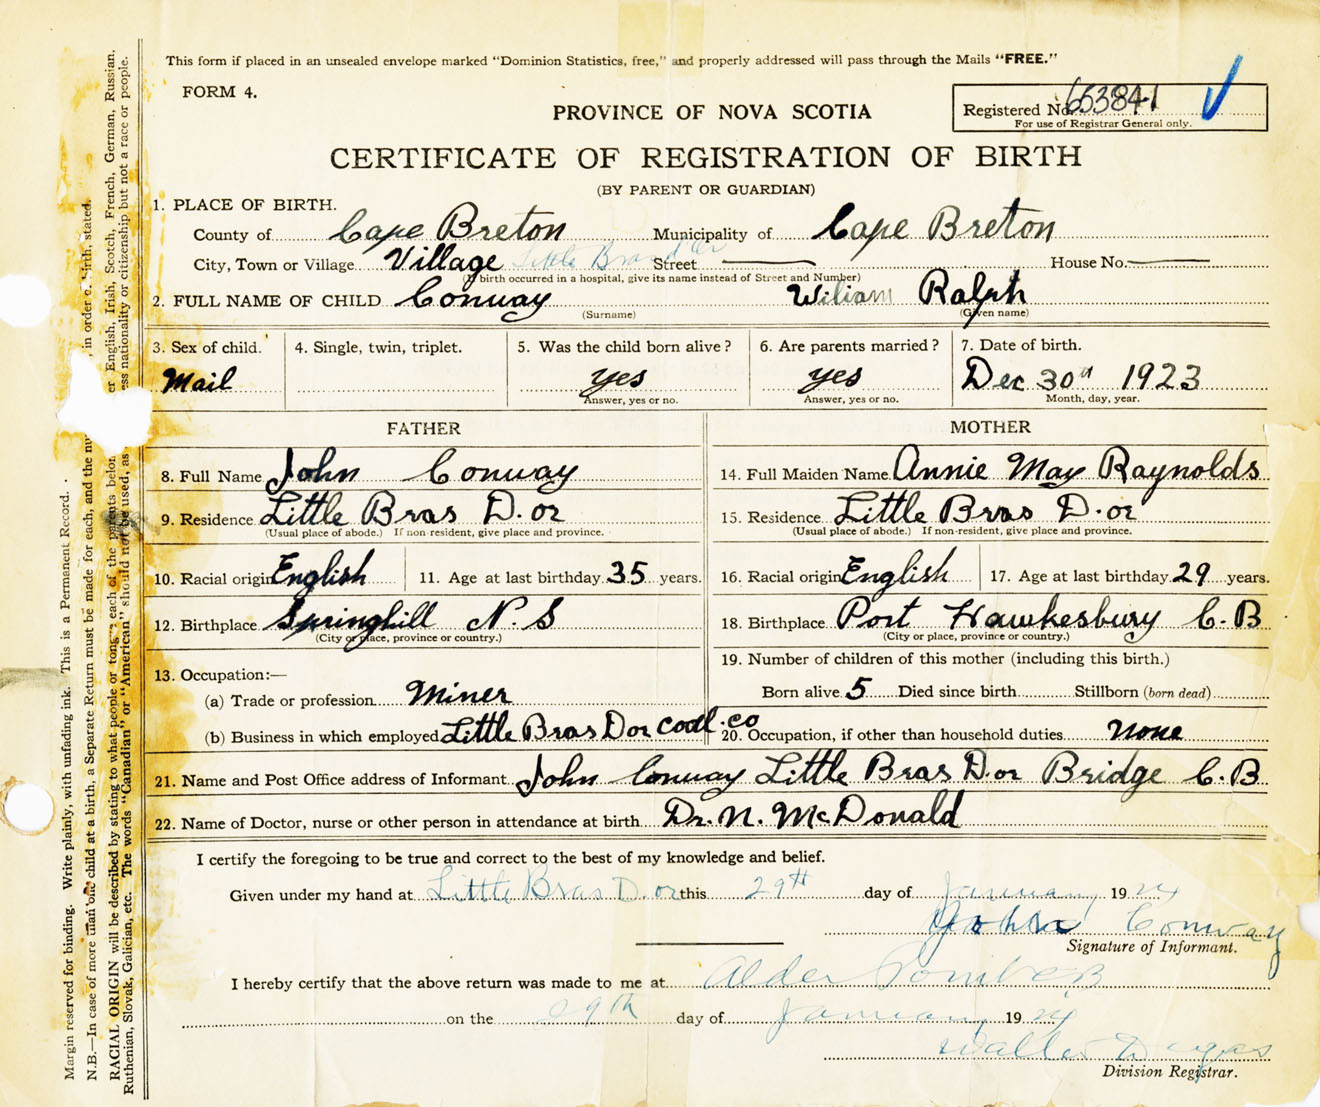 This form if placed in an unsealed envelope marked "Dominion Statistics, free," and properly addressed will pass through the Mails "FREE."
FORM 4.
PROVINCE OF NOVA SCOTIA
Registered No. 653841
For use of Registrar General only.
CERTIFICATE OF REGISTRATION OF BIRTH
(BY PARENT OR GUARDIAN)
1. PLACE OF BIRTH.
County of Cape Breton Municipality of Cape Breton
City, Town or Village Village Little Bras d'Or Street House No.
(If birth occurred in a hospital, give its name instead of Street and Number)
2. FULL NAME OF CHILD Conway Wiliam Ralph
(Surname) (Given name)
3. Sex of child. 4. Single, twin, triplet. 5. Was the child born alive? 6. Are parents married? 7. Date of birth.
Mail yes yes Dec 30th 1923
Answer, yes or no. Answer, yes or no. Month, day, year.
FATHER MOTHER
8. Full Name John Conway 14. Full Maiden Name Annie May Raynolds
9. Residence Little Bras D.or 15. Residence Little Bras D.or
(Usual place of abode.) If non-resident, give place and province. (Usual place of abode.) If non-resident, give place and province.
10. Racial origin English 11. Age at last birthday 35 years. 16. Racial origin English 17. Age at last birthday 29 years.
12. Birthplace Springhill N.S 18. Birthplace Port Hawkesbury C.B
(City or place, province or country.) (City or place, province or country.)
13. Occupation:— 19. Number of children of this mother (including this birth.)
(a) Trade or profession Miner Born alive 5 Died since birth Stillborn (born dead)
(b) Business in which employed Little Bras Dor coal.co 20. Occupation, if other than household duties None
21. Name and Post Office address of Informant John Conway Little Bras D.or Bridge C.B
22. Name of Doctor, nurse or other person in attendance at birth Dr. N. McDonald
I certify the foregoing to be true and correct to the best of my knowledge and belief.
Given under my hand at Little Bras D.or this 29th day of January 1924
John Conway
Signature of Informant.
I hereby certify that the above return was made to me at Alder
on the 29th day of January 1924
Walter
Division Registrar.
Margin reserved for binding. Write plainly, with unfading ink. This is a Permanent Record.
N.B.—In case of more than one child at a birth, a Separate Return must be made for each, and the in order of birth, stated.
RACIAL ORIGIN will be described by stating to what people or tongue each of the parents English, Irish, Scotch, French, German, Russian,
Ruthenian, Slovak, Galician, etc. The words "Canadian" or "American" should not be used, as nationality or citizenship but not a race or people.